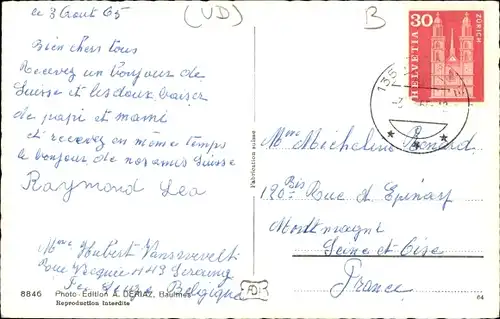 ce 3 Aout 65
(VD)
B
Bien chers tous
Recevez un bonjour de
Suisse et les doux baiser
de papi et mami
et recevez en même temps
le bonjour de nos amis Suisse
Raymond Lea
Mme Hubert
Rue 149 Seraing
Belgique
8846 Photo Edition A. DERIAZ, Baulmes
Reproduction interdite
Fabrication suisse
30
HELVETIA
ZÜRICH
Mme Micheline
120 Bis Rue d'Epinay
Montmagny
Seine et Oise
France
64